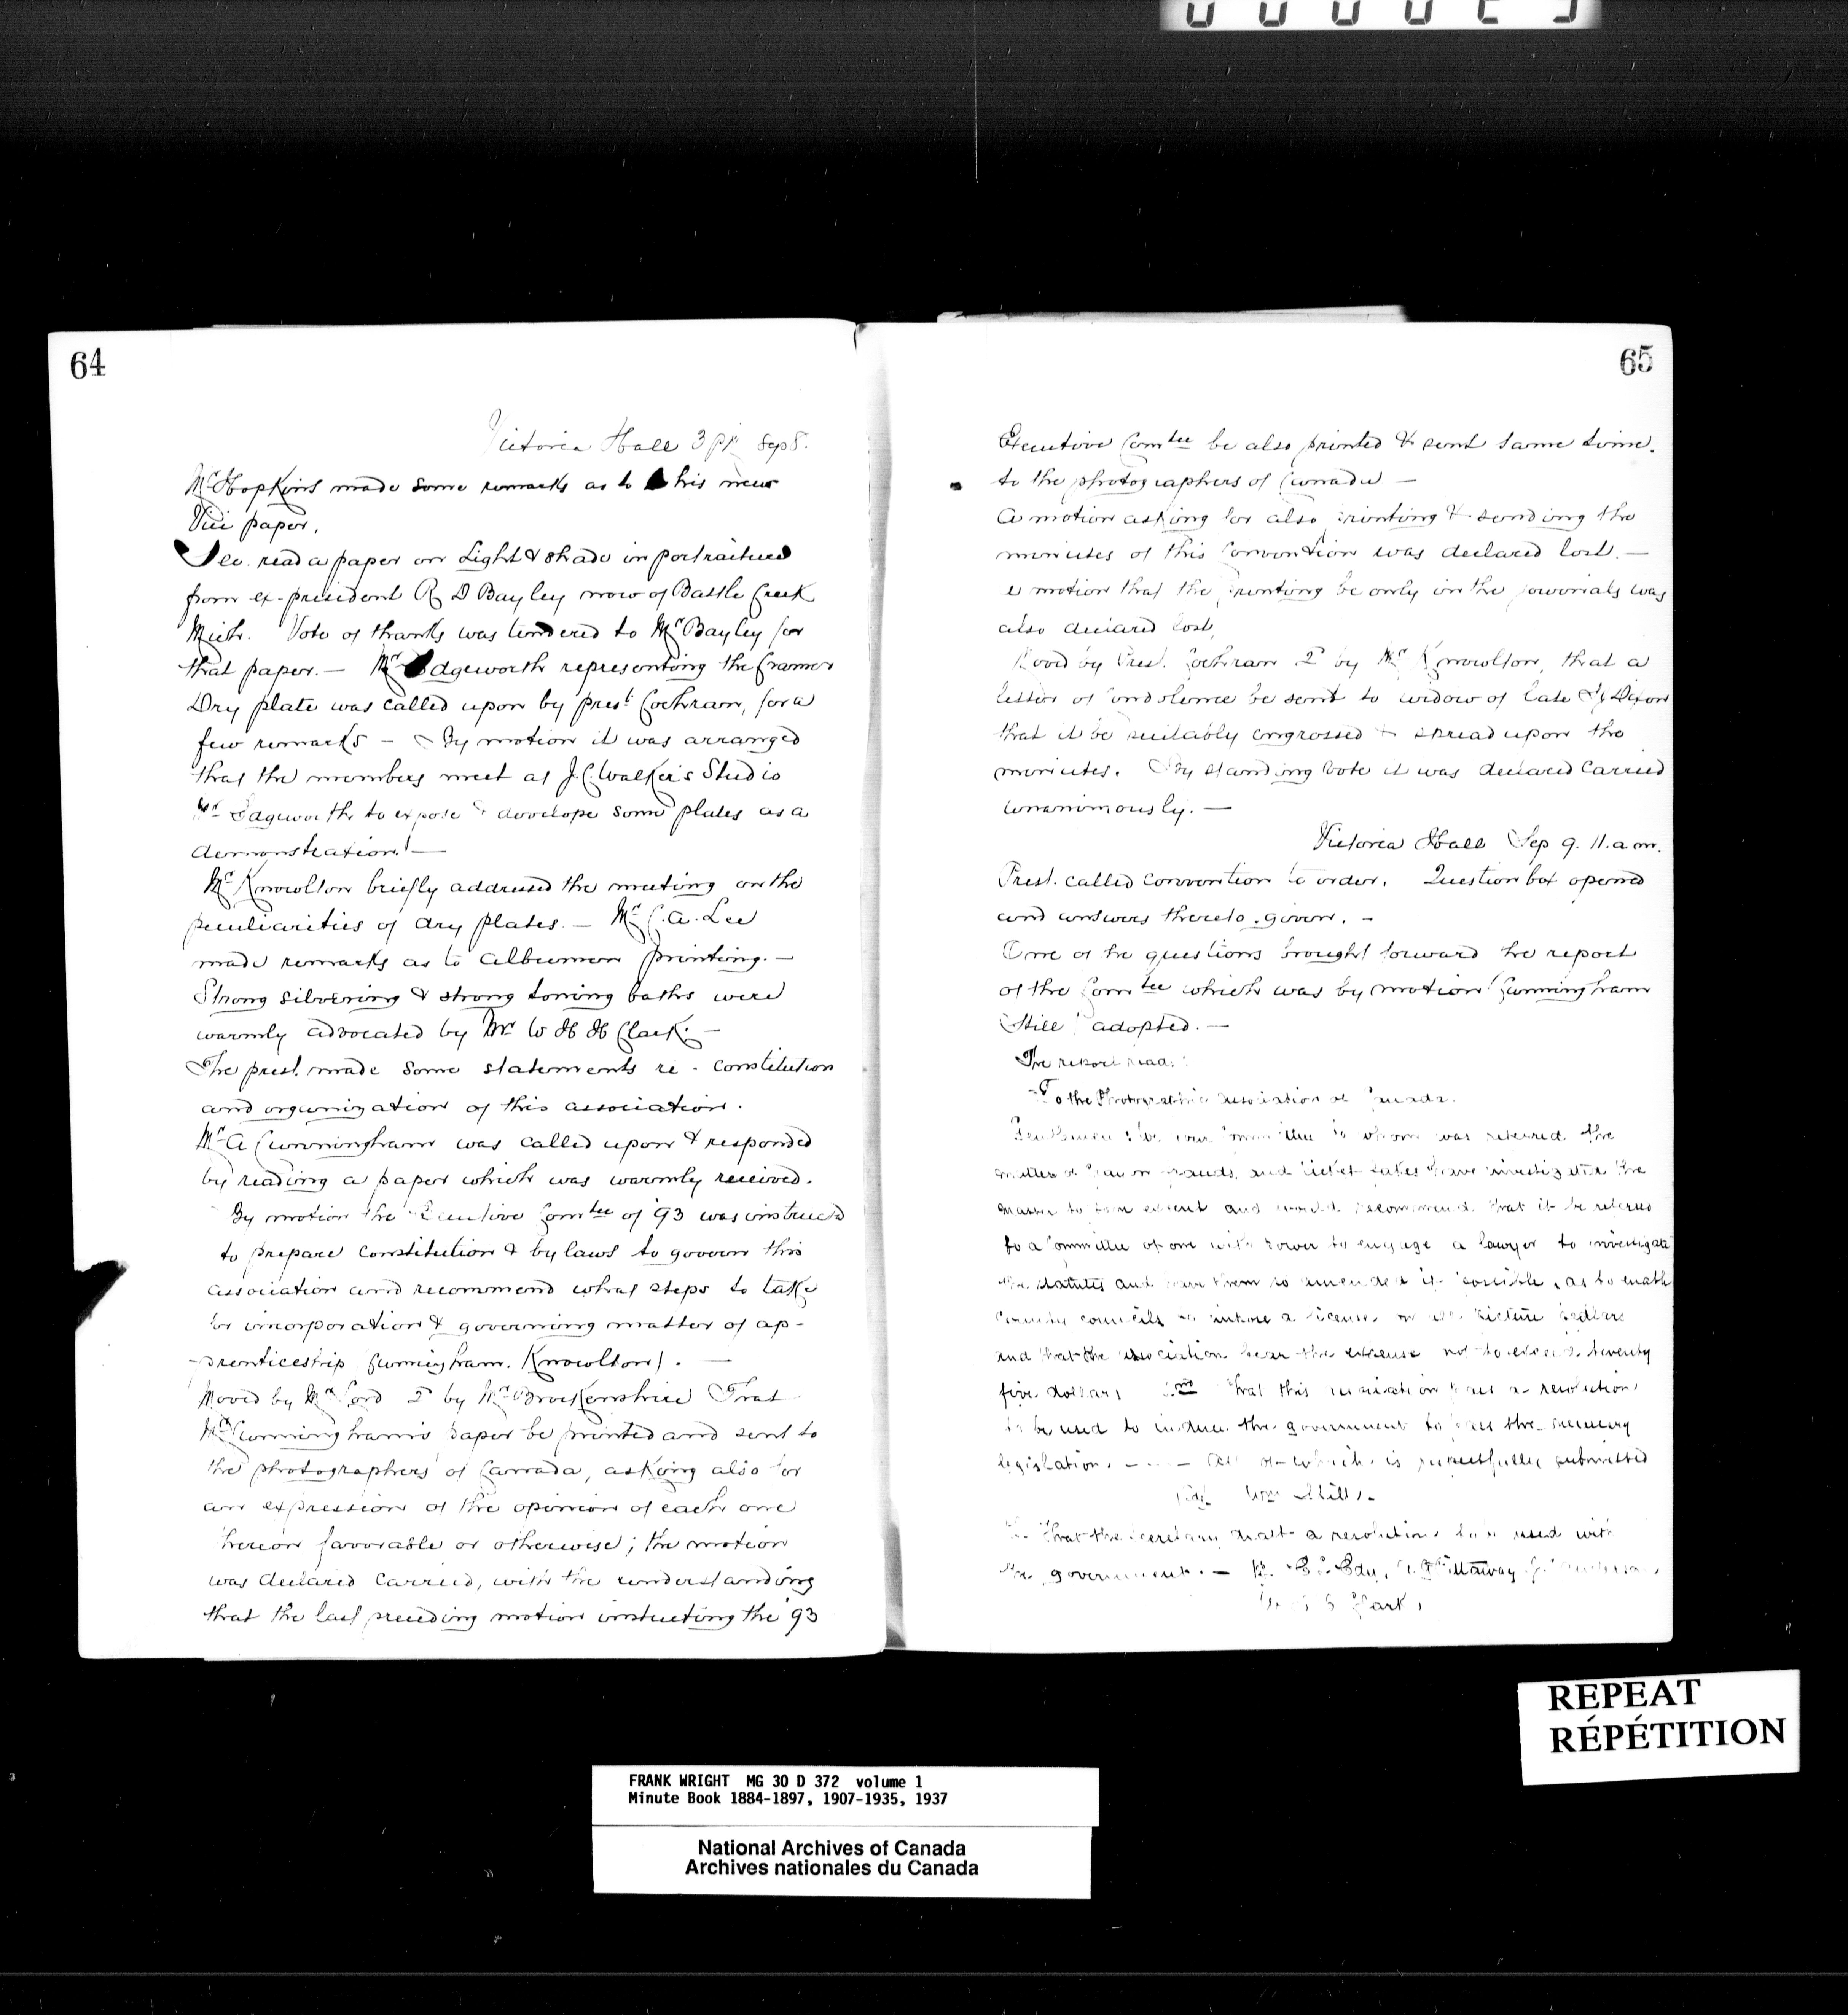 64
Victoria Hall 3 pm Sep 8.
Mr Hopkins made some remarks as to his new
Vici paper.
Sec. read a paper on Light & shade in portraiture
from ex-president R D Bayley now of Battle Creek
Mich. Vote of thanks was tendered to Mr Bayley for
that paper. — Mr Edgeworth representing the Cramer
Dry plate was called upon by prest. Cochran, for a
few remarks — By motion it was arranged
that the members meet at J. C. Walker's Studio
Mr Edgeworth to expose & develope some plates as a
demonstration. —
Mr Knowlton briefly addressed the meeting on the
peculiarities of dry plates. — Mr C. A. Lee
made remarks as to Albumen printing. —
Strong silvering & strong toning baths were
warmly advocated by Mr W H H Clark. —
The prest. made some statements re. constitution
and organization of this association.
Mr A Cunningham was called upon & responded
by reading a paper which was warmly received.
By motion the Executive Comtee of 93 was instructed
to prepare constitution & by laws to govern this
association and recommend what steps to take
for incorporation & governing matter of ap-
prenticeship Cunningham. Knowlton). —
Moved by Mr Lord 2 by Mr Brockenshire That
Mr Cunningham's paper be printed and sent to
the photographers of Canada, asking also for
an expression of the opinion of each one
thereon favorable or otherwise; the motion
was declared carried, with the understanding
that the last preceding motion instructing the '93
65
Executive Comtee be also printed & sent same time.
to the photographers of Canada —
A motion asking for also printing & sending the
minutes of this Convention was declared lost. —
a motion that the printing be only in the journals was
also declared lost,
Moved by Prest. Cochran 2 by Mr Knowlton, that a
letter of condolence be sent to widow of late Dixon
that it be suitably engrossed & spread upon the
minutes. By standing vote it was declared carried
unanimously. —
Victoria Hall Sep 9. 11. a.m.
Prest. called convention to order. Question box opened
and answers thereto given. —
One of the questions brought forward the report
of the Comtee which was by motion Cunningham
Still adopted. —
The report read:
To the Photographic Association of Canada.
Gentlemen: We your Committee to whom was referred the
matter of frauds, and ticket sales have investigated the
matter to some extent and would recommend that it be referred
to a Committee of one with power to engage a lawyer to investigate
the statutes and have them so amended if possible, as to enable
County councils to impose a license on all picture pedlars
and that the association bear the expense not to exceed twenty
five dollars 2nd That this association pass a resolution
to be used to induce the government to pass the necessary
legislation. — All of which is respectfully submitted
Wm Still.
That the secretary draft a resolution to be used with
the government. —
Clark,
REPEAT
RÉPÉTITION
FRANK WRIGHT MG 30 D 372 volume 1
Minute Book 1884-1897, 1907-1935, 1937
National Archives of Canada
Archives nationales du Canada